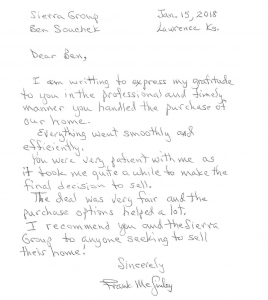 Sierra Group
Jan. 15, 2018
Ben Souchek
Lawrence Ks.
Dear Ben,
I am writting to express my gratitude
to you in the professional and timely
manner you handled the purchase of
our home.
Everything went smoothly and
efficiently.
You were very patient with me as
it took me quite a while to make the
final decision to sell.
The deal was very fair and the
purchase options helped a lot.
I recommend you and the Sierra
Group to anyone seeking to sell
their home!
Sincerely
Frank